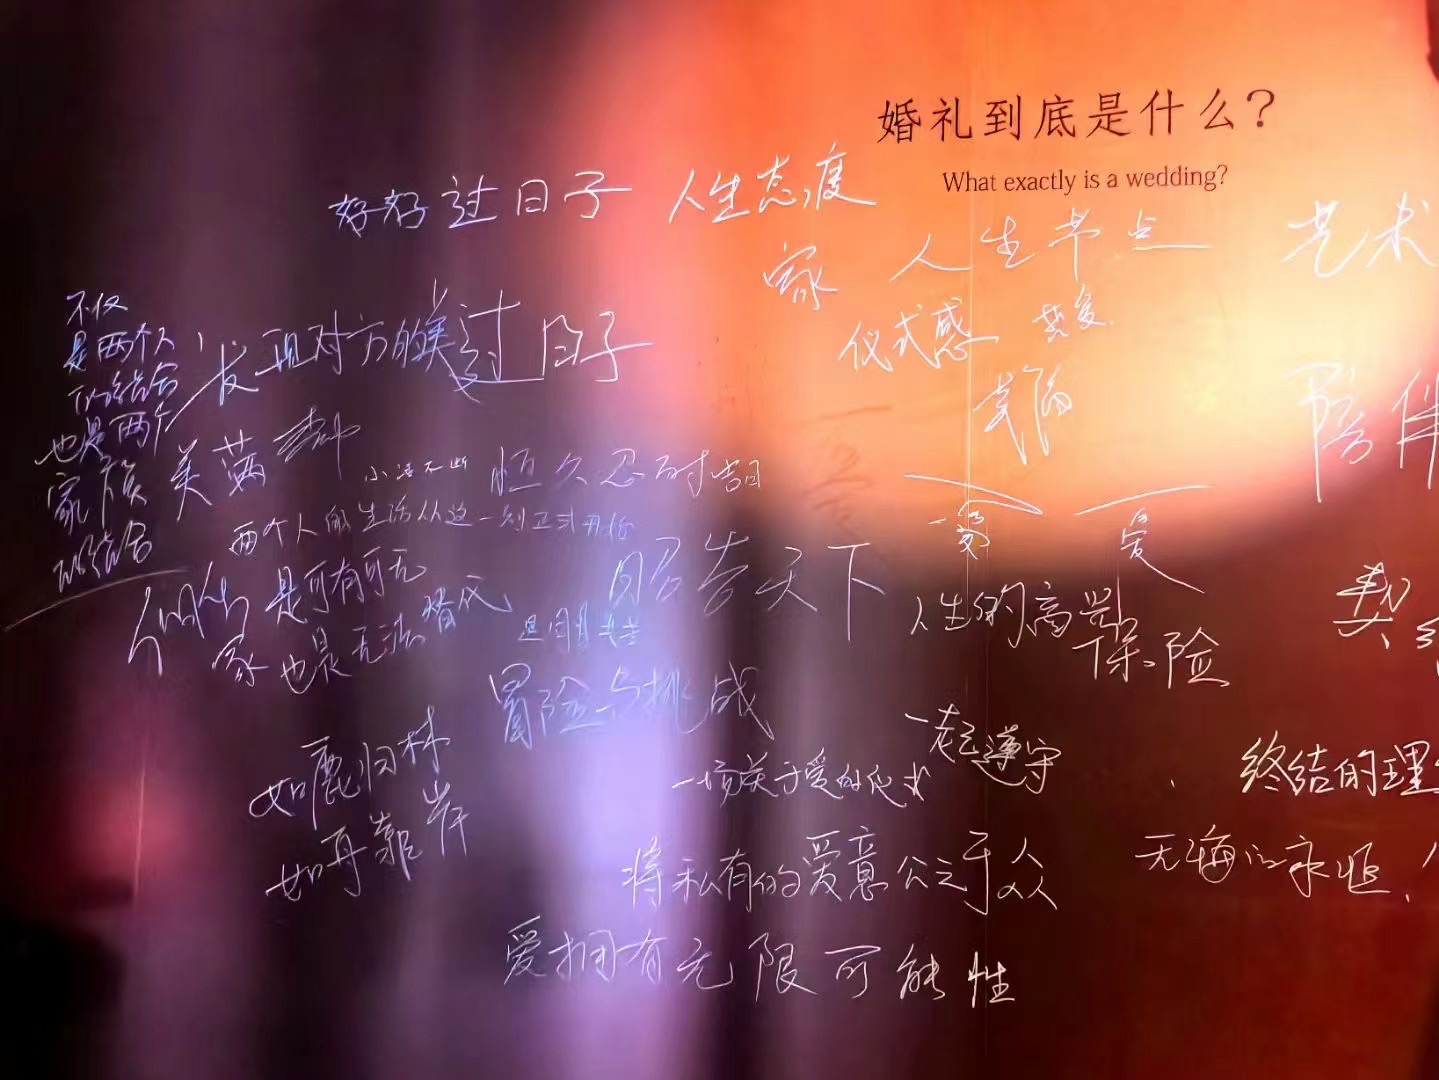 婚礼到底是什么?
What exactly is a wedding?
好好过日子
人生态度
人生节点
艺术
家
仪式感
幸福
陪伴
不仅
是两个人
的结合
也是两个
家族
的结合
发现对方的美
过日子
美满幸福
恒久忍耐
两个人的生活从这一刻正式开始
昭告天下
一场爱
爱
是可有可无
也是无法
家
人生的高光
保险
冒险与挑战
如鹿归林
如舟靠岸
一起遵守
一场关于爱的仪式
终结的理
将私有的爱意公之于众
无悔
爱拥有无限可能性